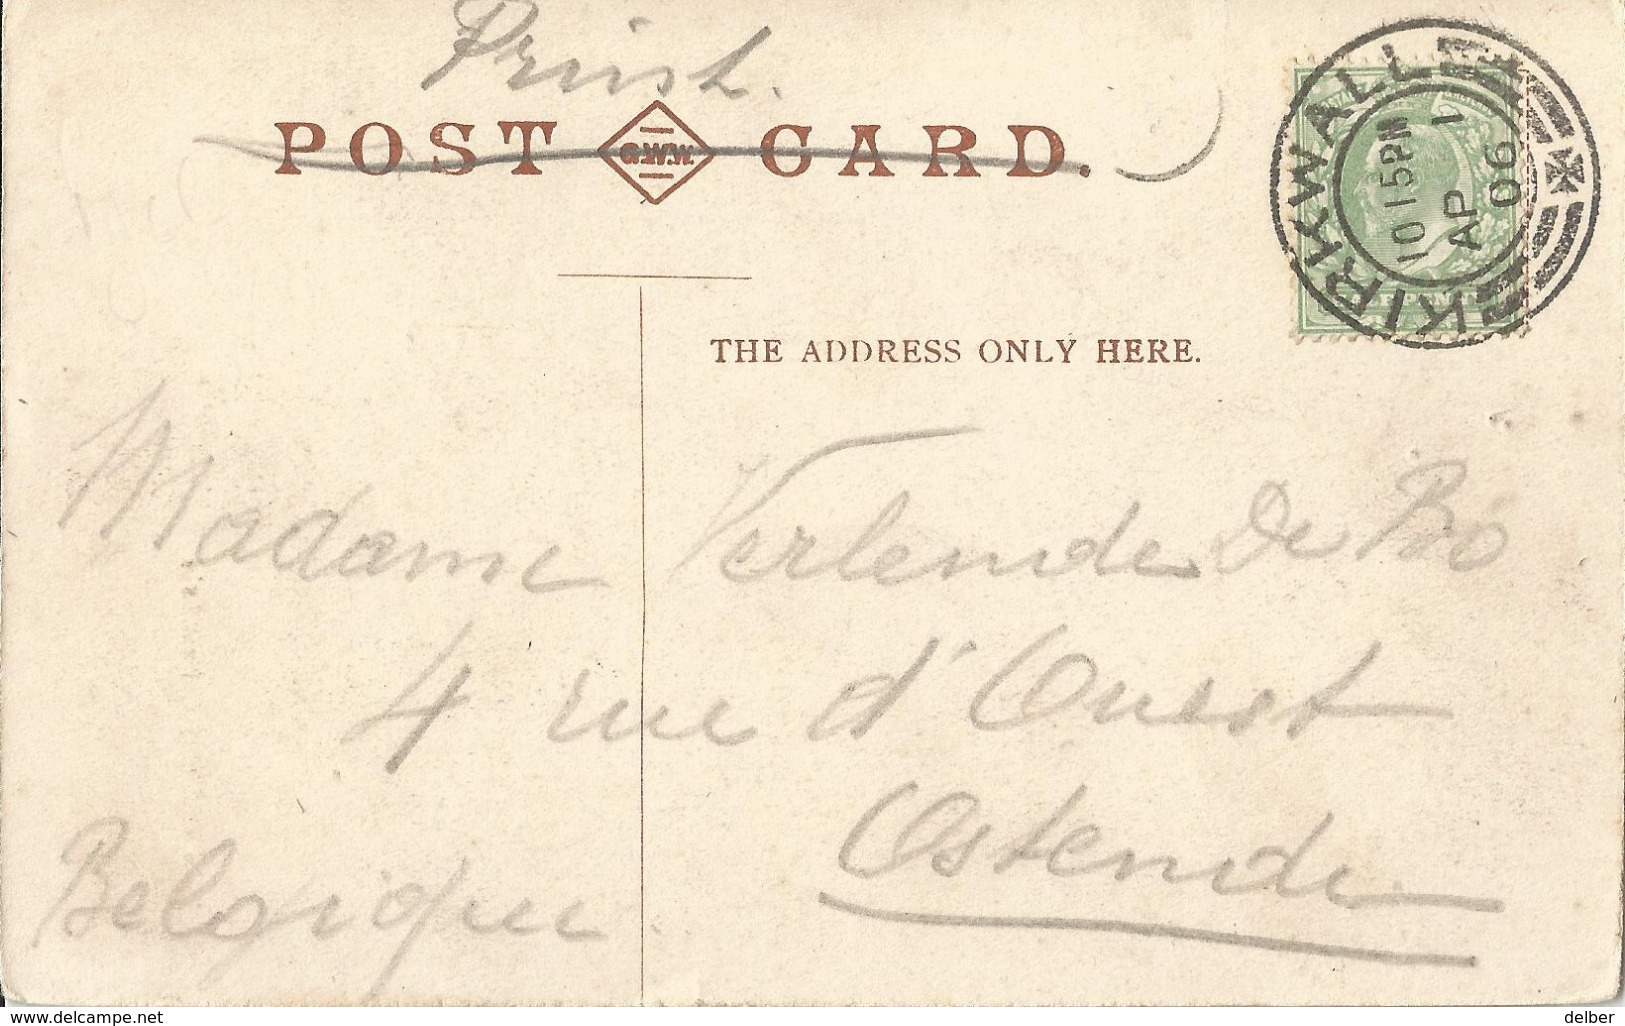 Print.
POST G.W.W. CARD.
KIRKWALL
10 15 PM
AP 1
06
THE ADDRESS ONLY HERE.
Madame Verlende De Bo
4 rue d'Ouest
Ostende
Belgique.
www.delcampe.net
delber